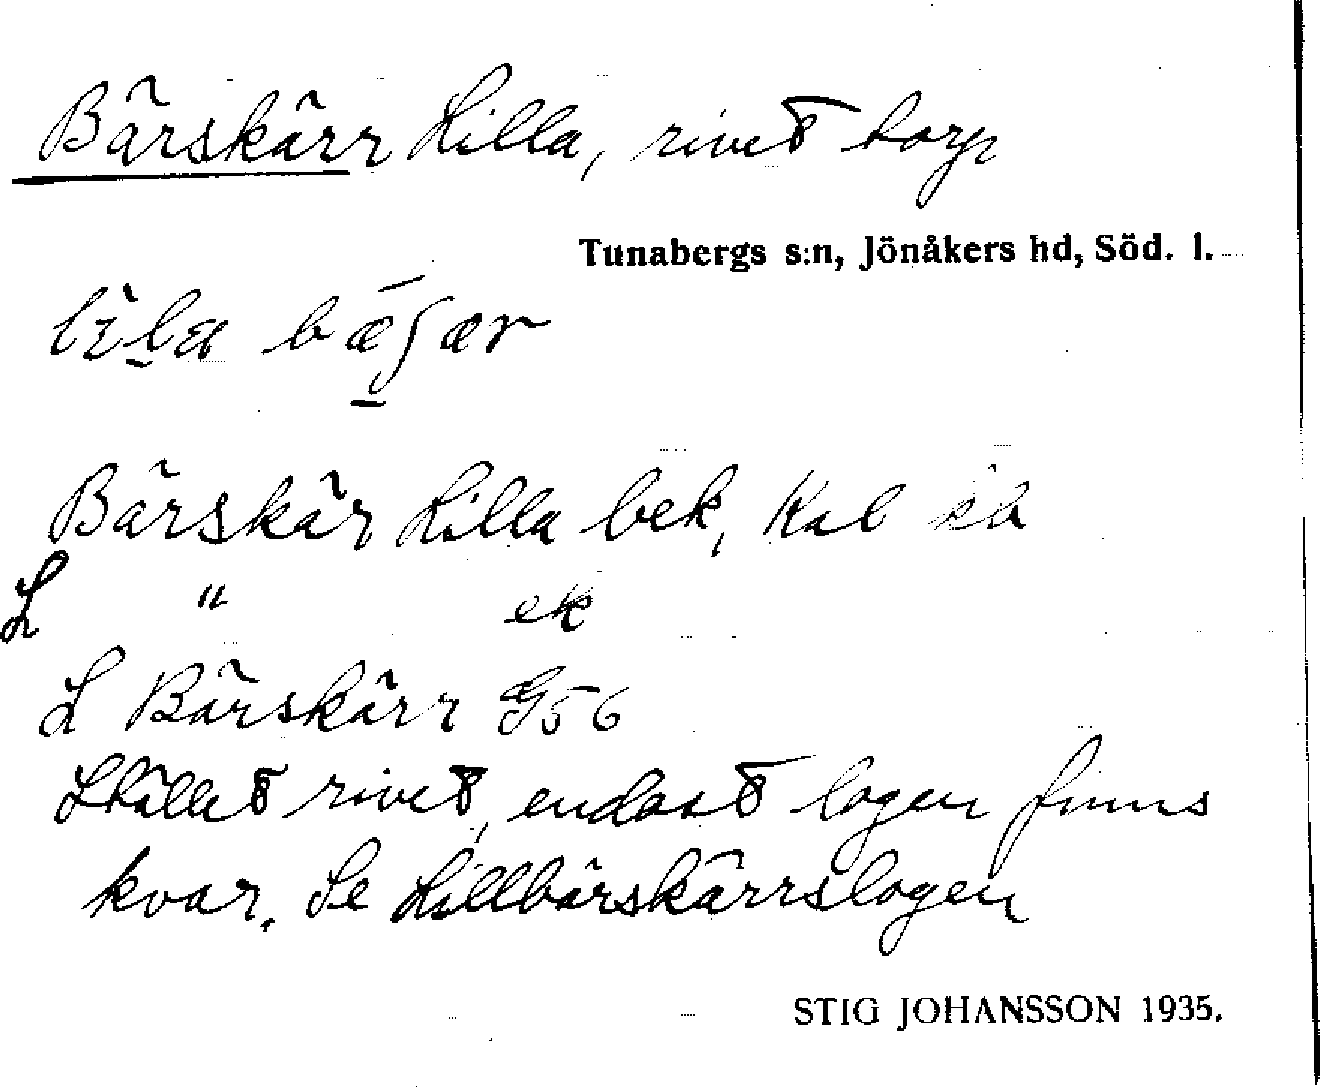 Bärskärr Lilla, rivet torp
Tunabergs s:n, Jönåkers hd, Söd. l.
lila bæʃær
Bärskär Lilla bek, Kal
L " ek
L Bärskärr G56
Stället rivet, endast logen finns
kvar. Se Lillbärskärrslogen
STIG JOHANSSON 1935.